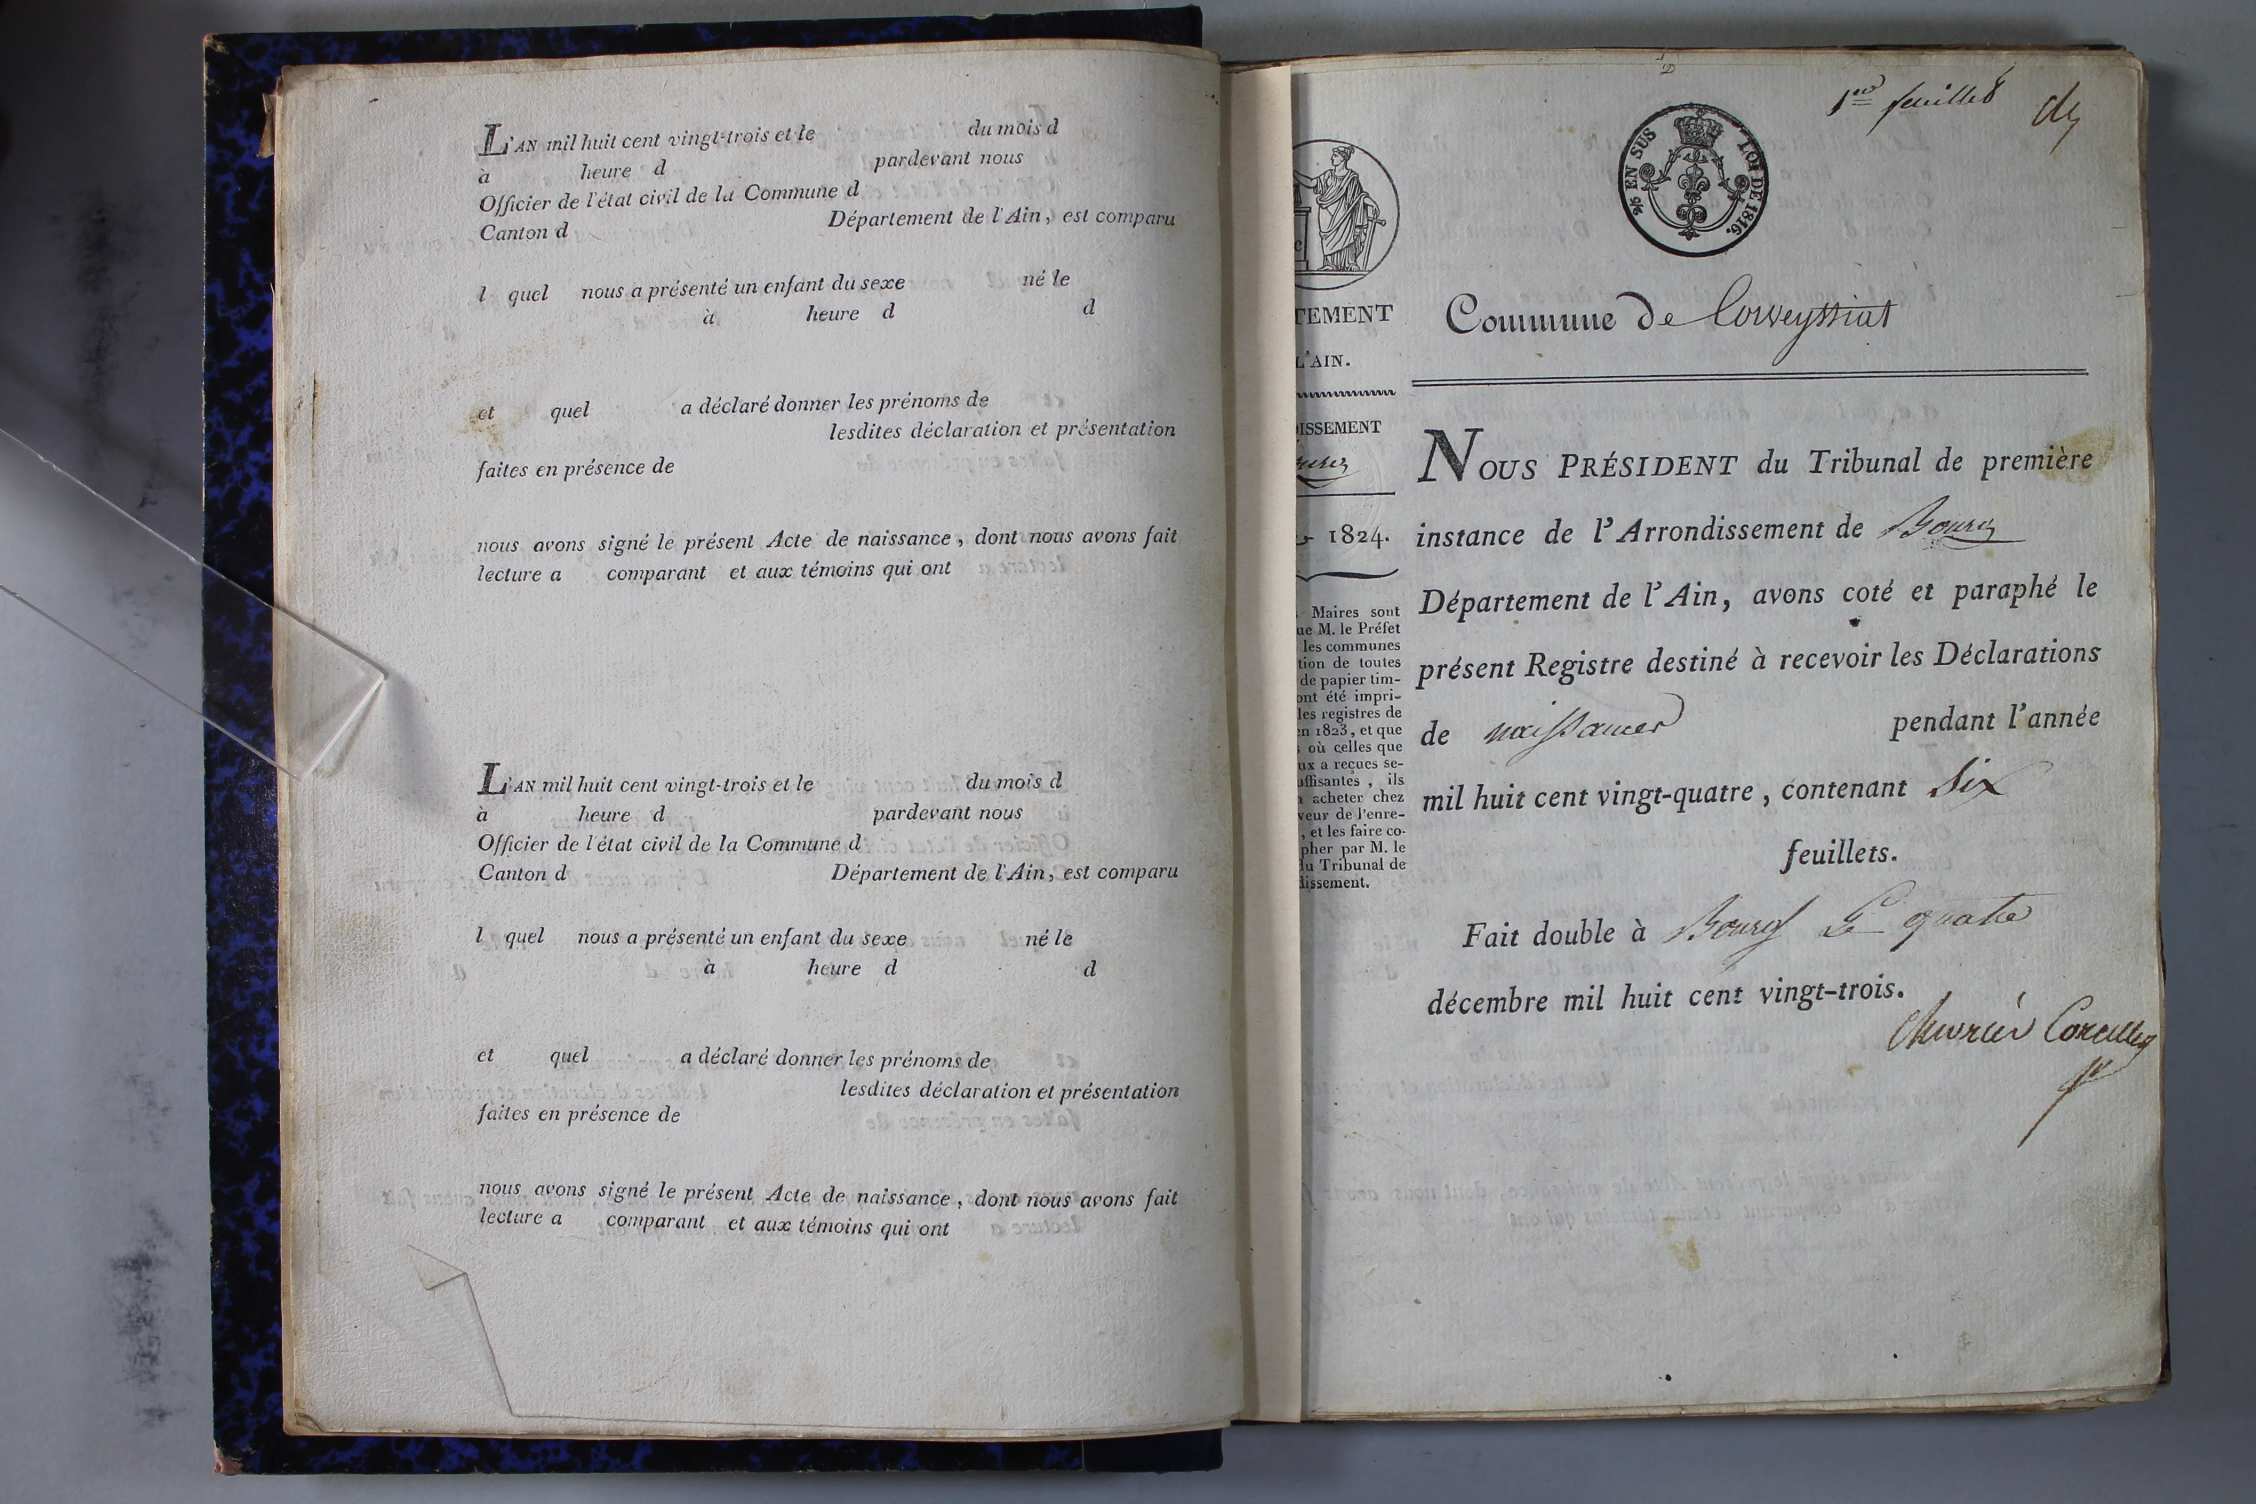 L'AN mil huit cent vingt-trois et le du mois d
à heure d pardevant nous
Officier de l'état civil de la Commune d
Canton d Département de l'Ain, est comparu
l quel nous a présenté un enfant du sexe né le
à heure d d
et quel a déclaré donner les prénoms de
lesdites déclaration et présentation
faites en présence de
nous avons signé le présent Acte de naissance, dont nous avons fait
lecture a comparant et aux témoins qui ont
L'AN mil huit cent vingt-trois et le du mois d
à heure d pardevant nous
Officier de l'état civil de la Commune d
Canton d Département de l'Ain, est comparu
l quel nous a présenté un enfant du sexe né le
à heure d d
et quel a déclaré donner les prénoms de
lesdites déclaration et présentation
faites en présence de
nous avons signé le présent Acte de naissance, dont nous avons fait
lecture a comparant et aux témoins qui ont
1er feuillet
EN SUS LOI DE 1816.
TEMENT
L'AIN.
ISSEMENT
1824.
Maires sont
ue M. le Préfet
les communes
tion de toutes
de papier tim-
ont été impri-
les registres de
en 1823, et que
où celles que
ux a reçues se-
uffisantes, ils
acheter chez
veur de l'enre-
, et les faire co-
pher par M. le
du Tribunal de
dissement.
Commune de Corveyssiat
NOUS PRÉSIDENT du Tribunal de première
instance de l'Arrondissement de Bourg
Département de l'Ain, avons coté et paraphé le
présent Registre destiné à recevoir les Déclarations
de naissances pendant l'année
mil huit cent vingt-quatre, contenant six
feuillets.
Fait double à Bourg le quatre
décembre mil huit cent vingt-trois.